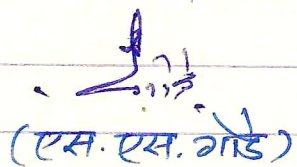 (एस. एस. गौडे)